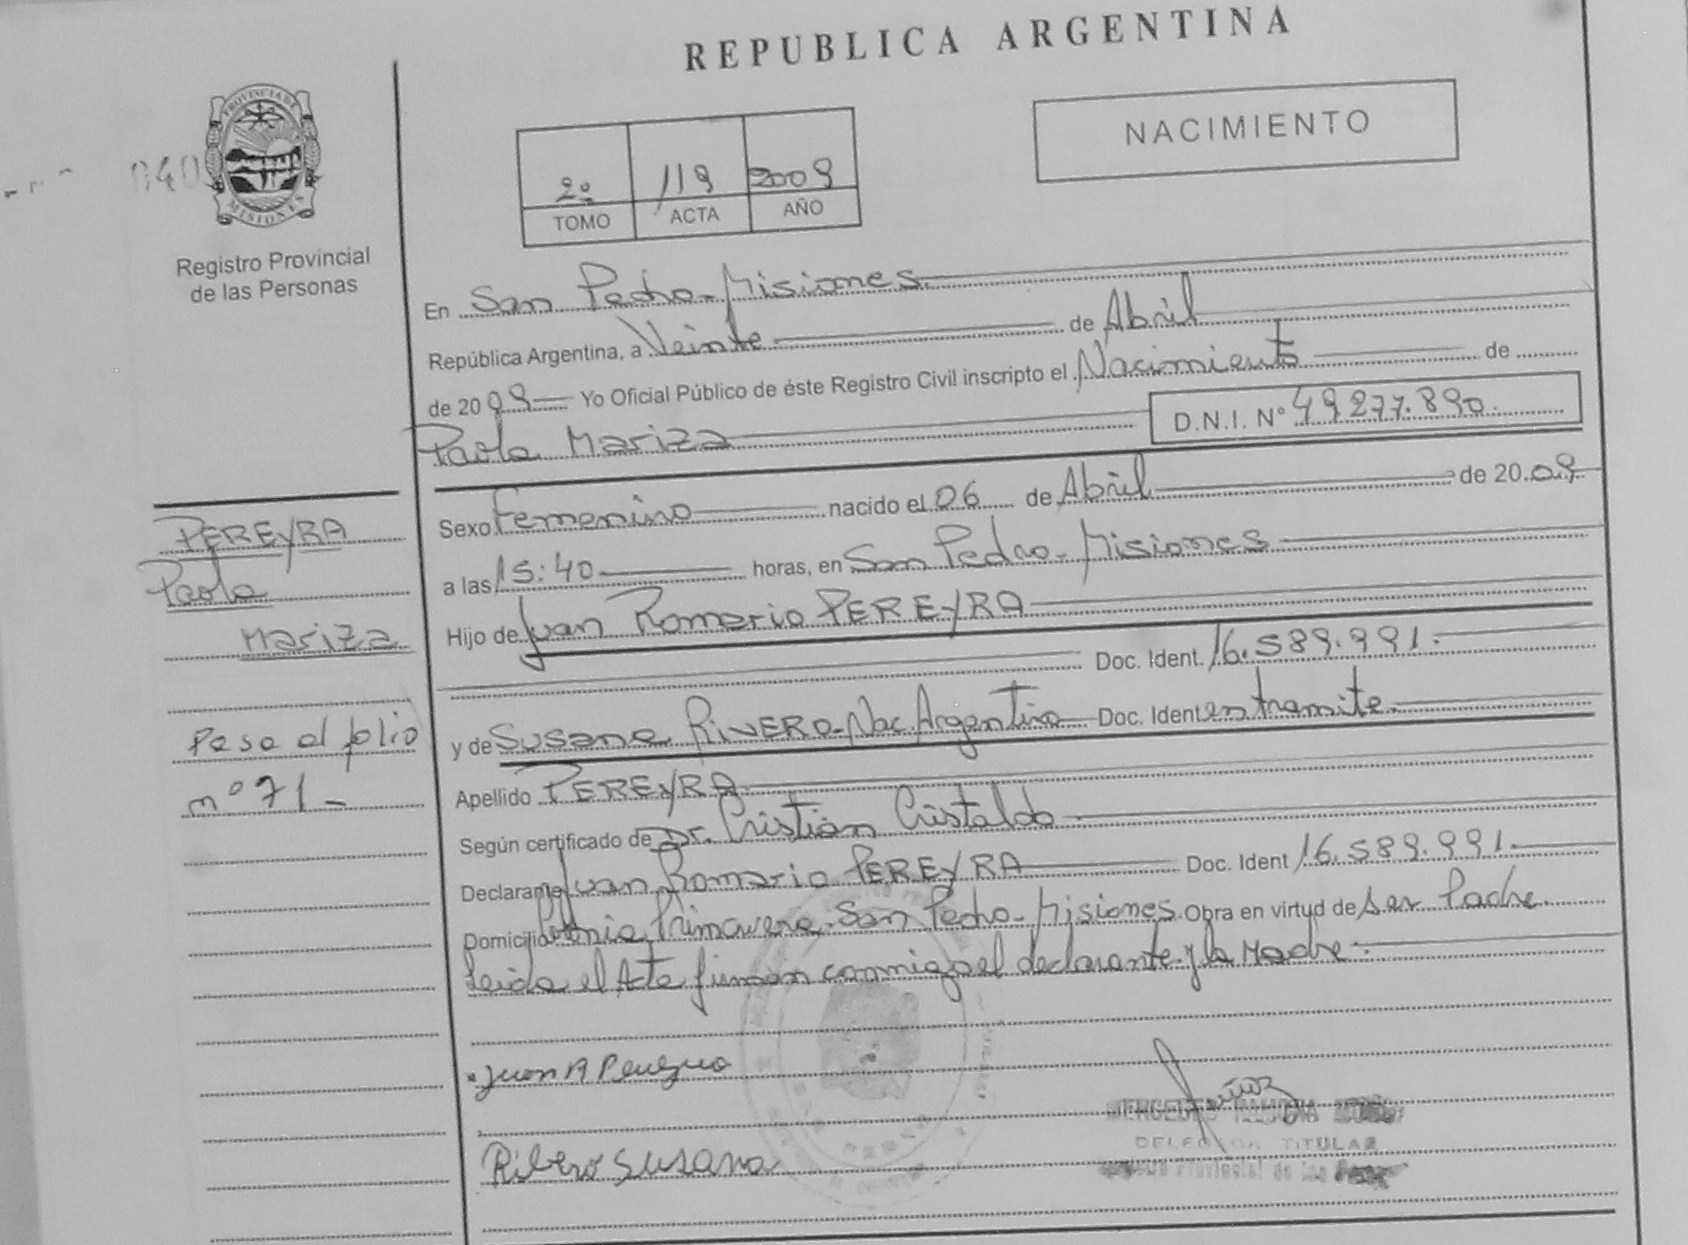 REPUBLICA ARGENTINA
NACIMIENTO
PROVINCIA DE
MISIONES
040
Registro Provincial
de las Personas
2º 119 2009
TOMO ACTA AÑO
En San Pedro-Misiones
República Argentina, a Veinte de Abril
de 20 09 Yo Oficial Público de éste Registro Civil inscripto el Nacimiento de
Paola Mariza D.N.I. Nº 49.277.890.
Sexo Femenino nacido el 06 de Abril de 20 09
a las 15:40 horas, en San Pedro-Misiones
Hijo de Juan Romario PEREYRA
Doc. Ident. 16.589.991.
y de Susana RIVERO-Nac. Argentina Doc. Ident en tramite.
Apellido PEREYRA
Según certificado de Dr. Cristian Cristaldo
Declarante Juan Romario PEREYRA Doc. Ident 16.589.991.
Domicilio Colonia Primavera-San Pedro-Misiones. Obra en virtud de ser Padre.
Leida el Acta firman conmigo el declarante y la Madre.
Juan R Pereyra
Ribero Susana
DELEGADA TITULAR
Provincial de las
PEREYRA
Paola
Mariza
Pasa al folio
nº 71-